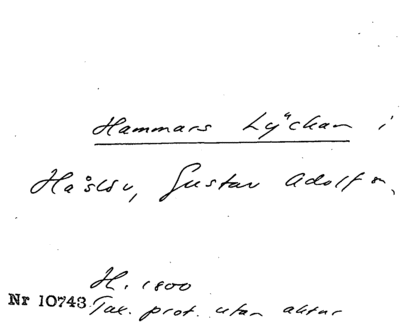 Hammars Lyckan i
Håslöv, Gustav Adolf s.
H. 1800
Nr 10743 Tax. prot. utan aktnr